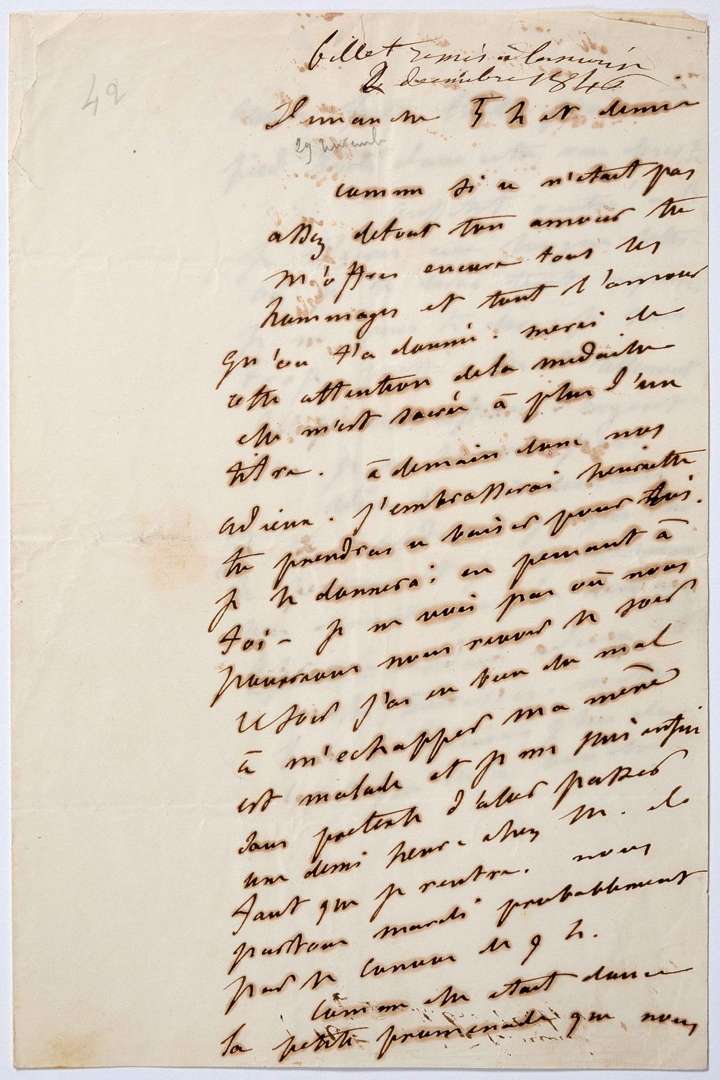 42
billet remis à
2 decembre 1846
Dimanche 5 h et demie
29 novemb
comme si ce n'etait pas
assez de tout ton amour tu
m'offres encore tous les
hommages et tout l'amour
qu'on t'a donné. merci de
cette attention de la medaille
elle m'est sacrée à plus d'un
titre. à demain donc nos
adieux. j'embrasserai henriette
tu prendras ce baiser pour toi.
je le donnerai en pensant à
toi – je ne vois pas où nous
pourrons nous revoir le soir
ce soir j'ai eu bien du mal
à m'echapper ma mère
est malade et je me suis enfui
sous pretexte d'aller passer
une demi heure chez M. il
faut que je rentre. nous
partons mardi probablement
par le convoi de 9 h.
Comme elle etait douce
la petite promenade que nous